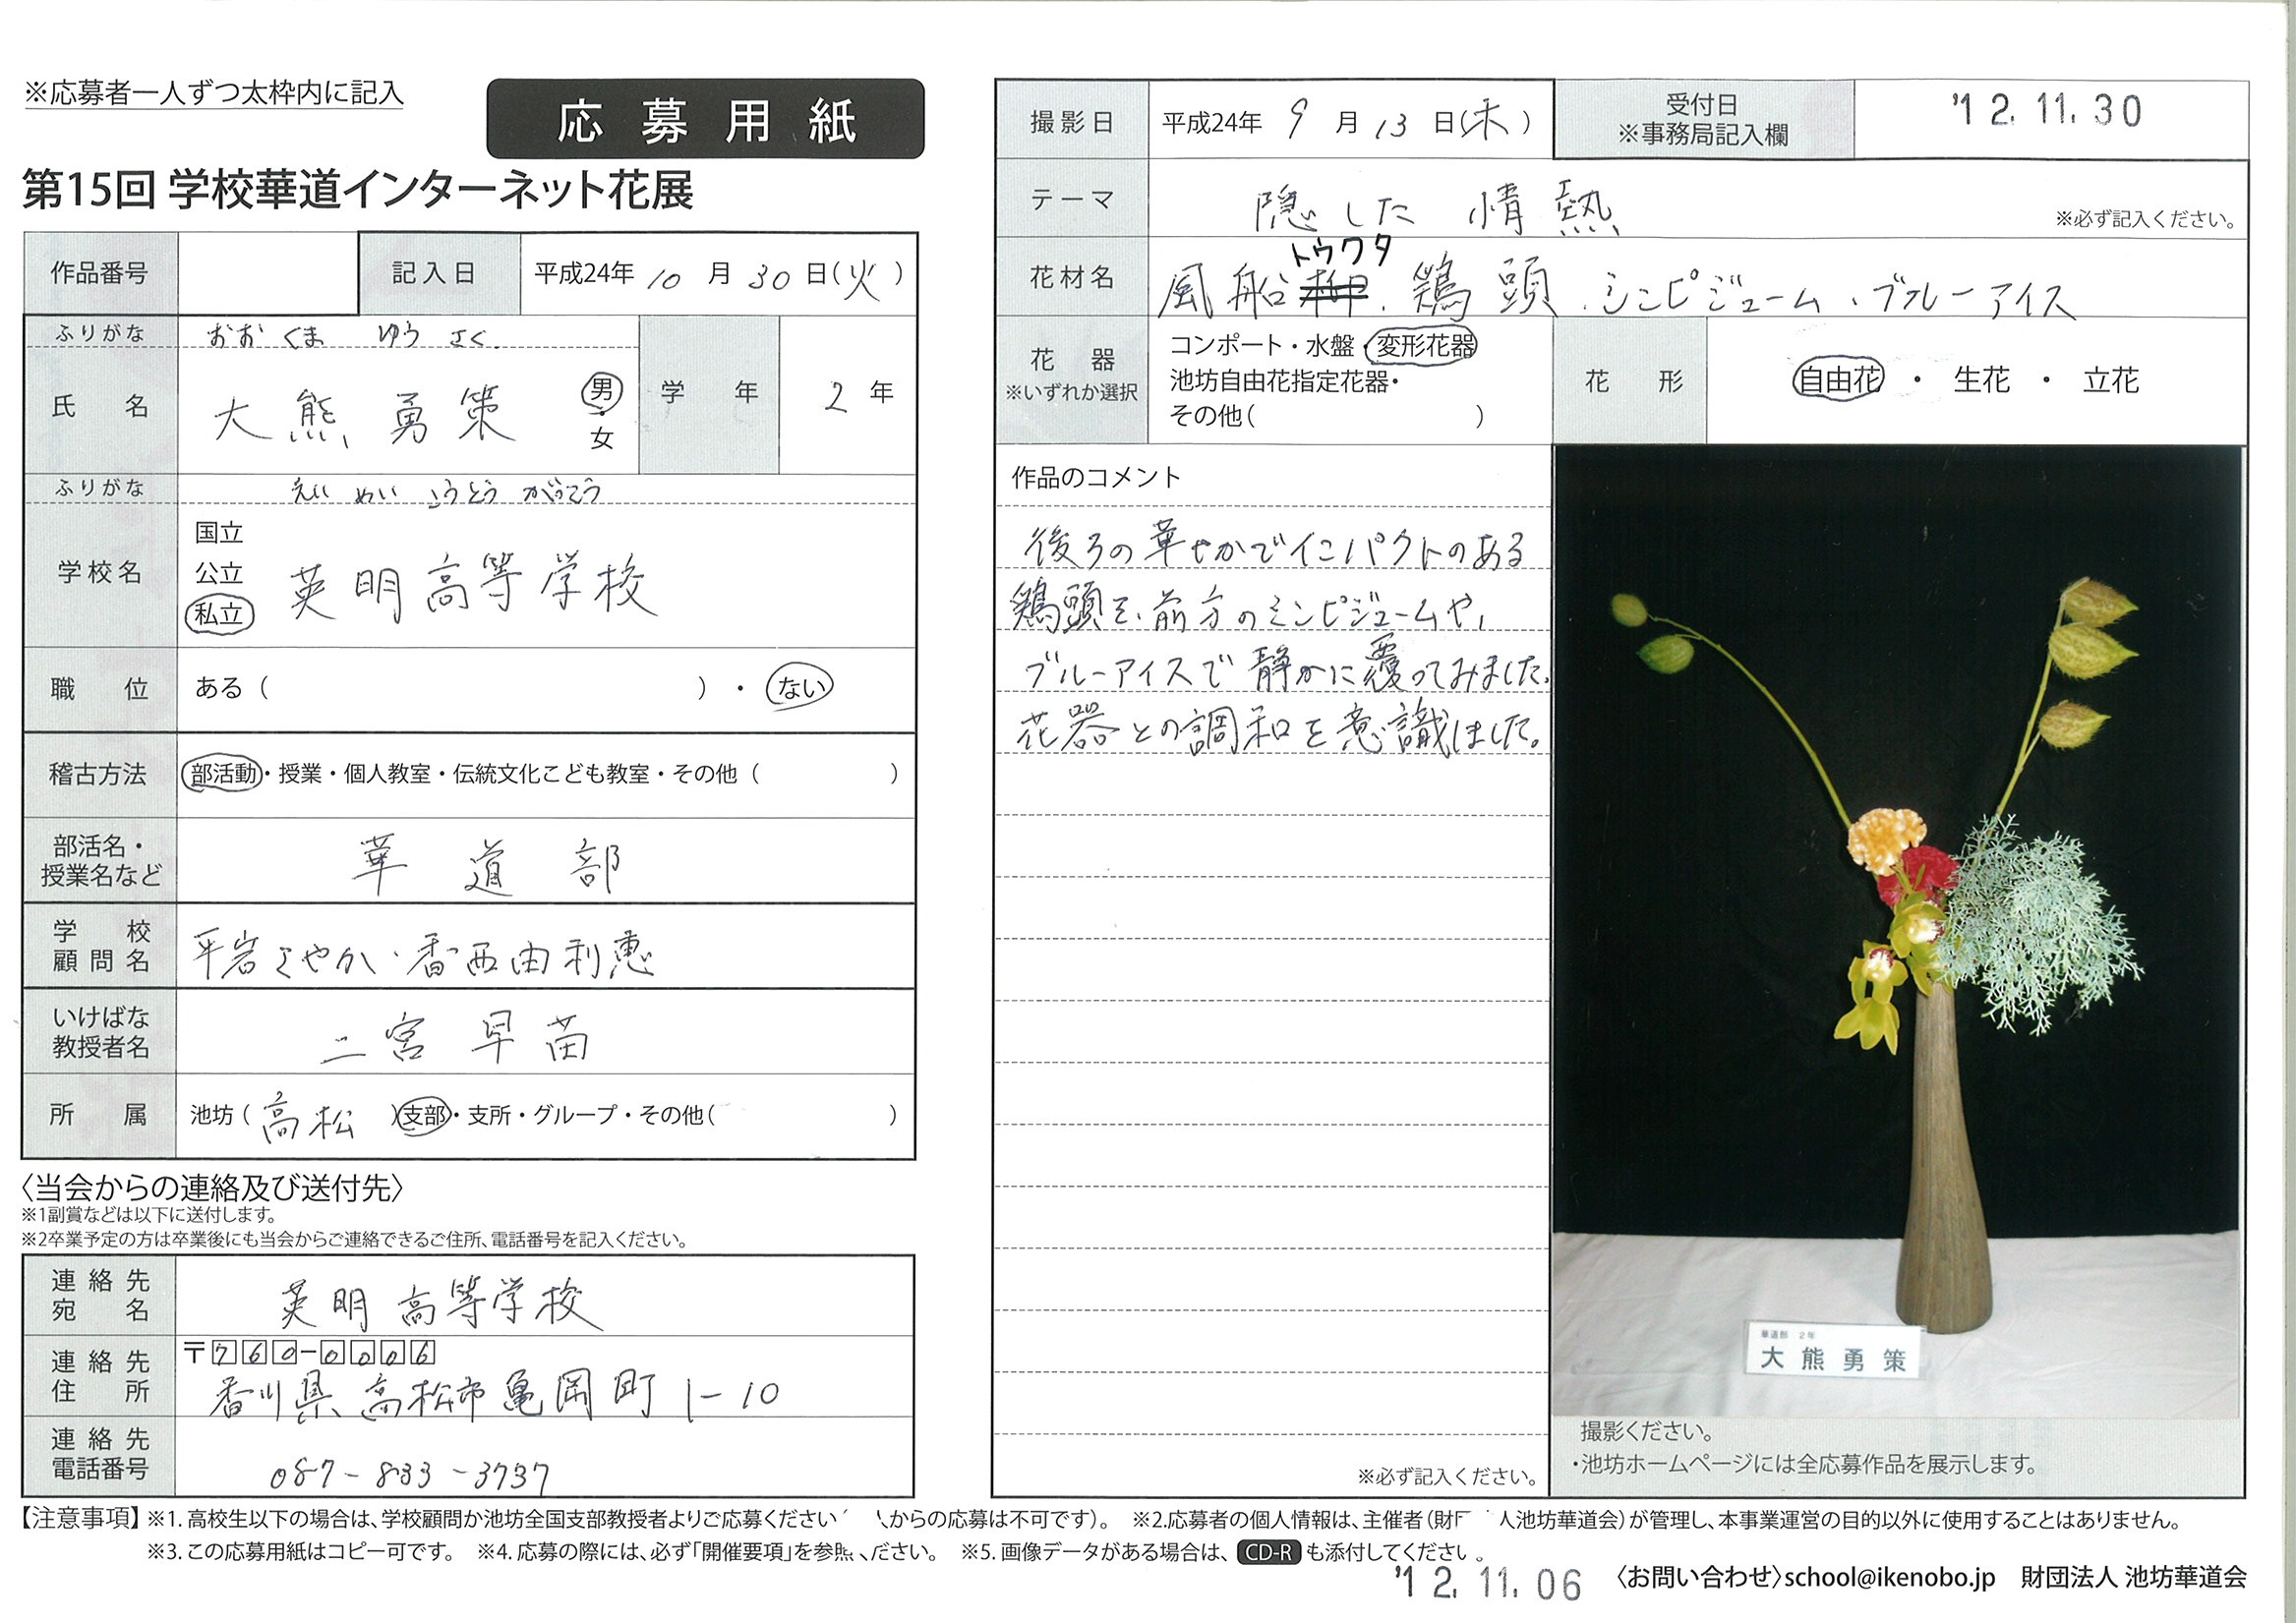 ※応募者一人ずつ太枠内に記入
応募用紙
第15回 学校華道インターネット花展
作品番号
記入日 平成24年 10月 30日(火)
ふりがな おおくま ゆうさく
氏名 大熊勇策 男・女
学年 2年
ふりがな えいめいこうとうがっこう
学校名 国立 公立 私立 英明高等学校
職位 ある( )・ない
稽古方法 部活動・授業・個人教室・伝統文化こども教室・その他( )
部活名・授業名など 華道部
学校顧問名 平岩さやか・香西由利恵
いけばな教授者名 二宮早苗
所属 池坊(高松)支部・支所・グループ・その他( )
〈当会からの連絡及び送付先〉
※1副賞などは以下に送付します。
※2卒業予定の方は卒業後にも当会からご連絡できるご住所、電話番号を記入ください。
連絡先宛名 英明高等学校
連絡先住所 〒760-0006
香川県高松市亀岡町1-10
連絡先電話番号 087-833-3737
撮影日 平成24年 9月 13日(木)
受付日 ※事務局記入欄 '12.11.30
テーマ 隠した情熱 ※必ず記入ください。
トウワタ
花材名 風船・鶏頭・シンピジューム・ブルーアイス
花器 ※いずれか選択
コンポート・水盤・変形花器
池坊自由花指定花器・
その他( )
花形 自由花・生花・立花
作品のコメント
後ろの華やかでインパクトのある
鶏頭を、前方のシンピジュームや、
ブルーアイスで静かに覆ってみました。
花器との調和を意識しました。
※必ず記入ください。
華道部 2年
大熊勇策
撮影ください。
・池坊ホームページには全応募作品を展示します。
【注意事項】※1. 高校生以下の場合は、学校顧問か池坊全国支部教授者よりご応募ください 人からの応募は不可です)。 ※2.応募者の個人情報は、主催者(財 人池坊華道会)が管理し、本事業運営の目的以外に使用することはありません。
※3. この応募用紙はコピー可です。 ※4. 応募の際には、必ず「開催要項」を参照ください。 ※5. 画像データがある場合は、CD-Rも添付してください。
'12.11.06
〈お問い合わせ〉school@ikenobo.jp 財団法人 池坊華道会